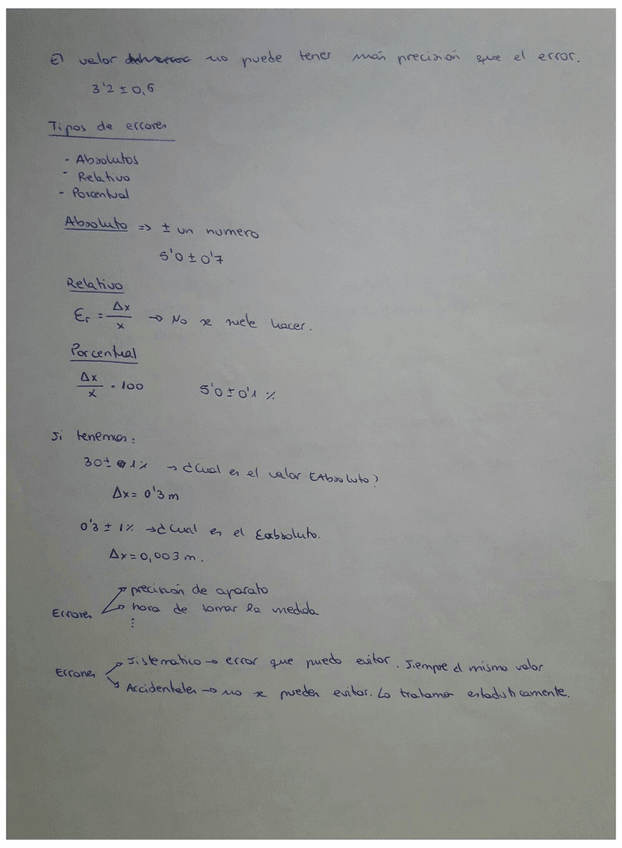 El valor no puede tener más precisión que el error.
3'2 ± 0,6
Tipos de errores
- Absolutos
- Relativo
- Porcentual
Absoluto => ± un numero
5'0 ± 0'7
Relativo
Er = Δx/x → No se suele hacer.
Porcentual
Δx/x · 100 5'0 ± 0'1 %
Si tenemos:
30 ± 1% → ¿Cual es el valor EAbsoluto?
Δx = 0'3 m
0'3 ± 1% → ¿Cual es el Eabsoluto.
Δx = 0,003 m.
precisión de aparato
Errores hora de tomar la medida
⋮
Sistematico → error que puedo evitar. Siempre el mismo valor
Errores
Accidentales → no se pueden evitar. Lo tratamos estadisticamente.